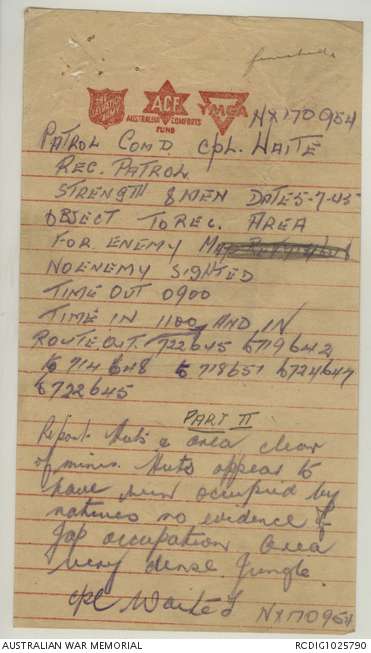 furnished
THE SALVATION ARMY
ACF
AUSTRALIAN COMFORTS FUND
YMCA
NX170954
PATROL COMD CPL. WAITE
REC. PATROL
STRENGTH 8 MEN DATE 5-7-45
OBJECT TO REC. AREA
FOR ENEMY
NO ENEMY SIGHTED
TIME OUT 0900
TIME IN 1100 AND IN
ROUTE OUT. 722645 to 719642
to 714648 to 718651 to 724647
to 722645
PART II
Report. Huts & area clear
of mines. Huts appear to
have been occupied by
natives no evidence of
Jap occupation Area
very dense Jungle
Cpl Waite
NX170954
AUSTRALIAN WAR MEMORIAL
RCDIG1025790